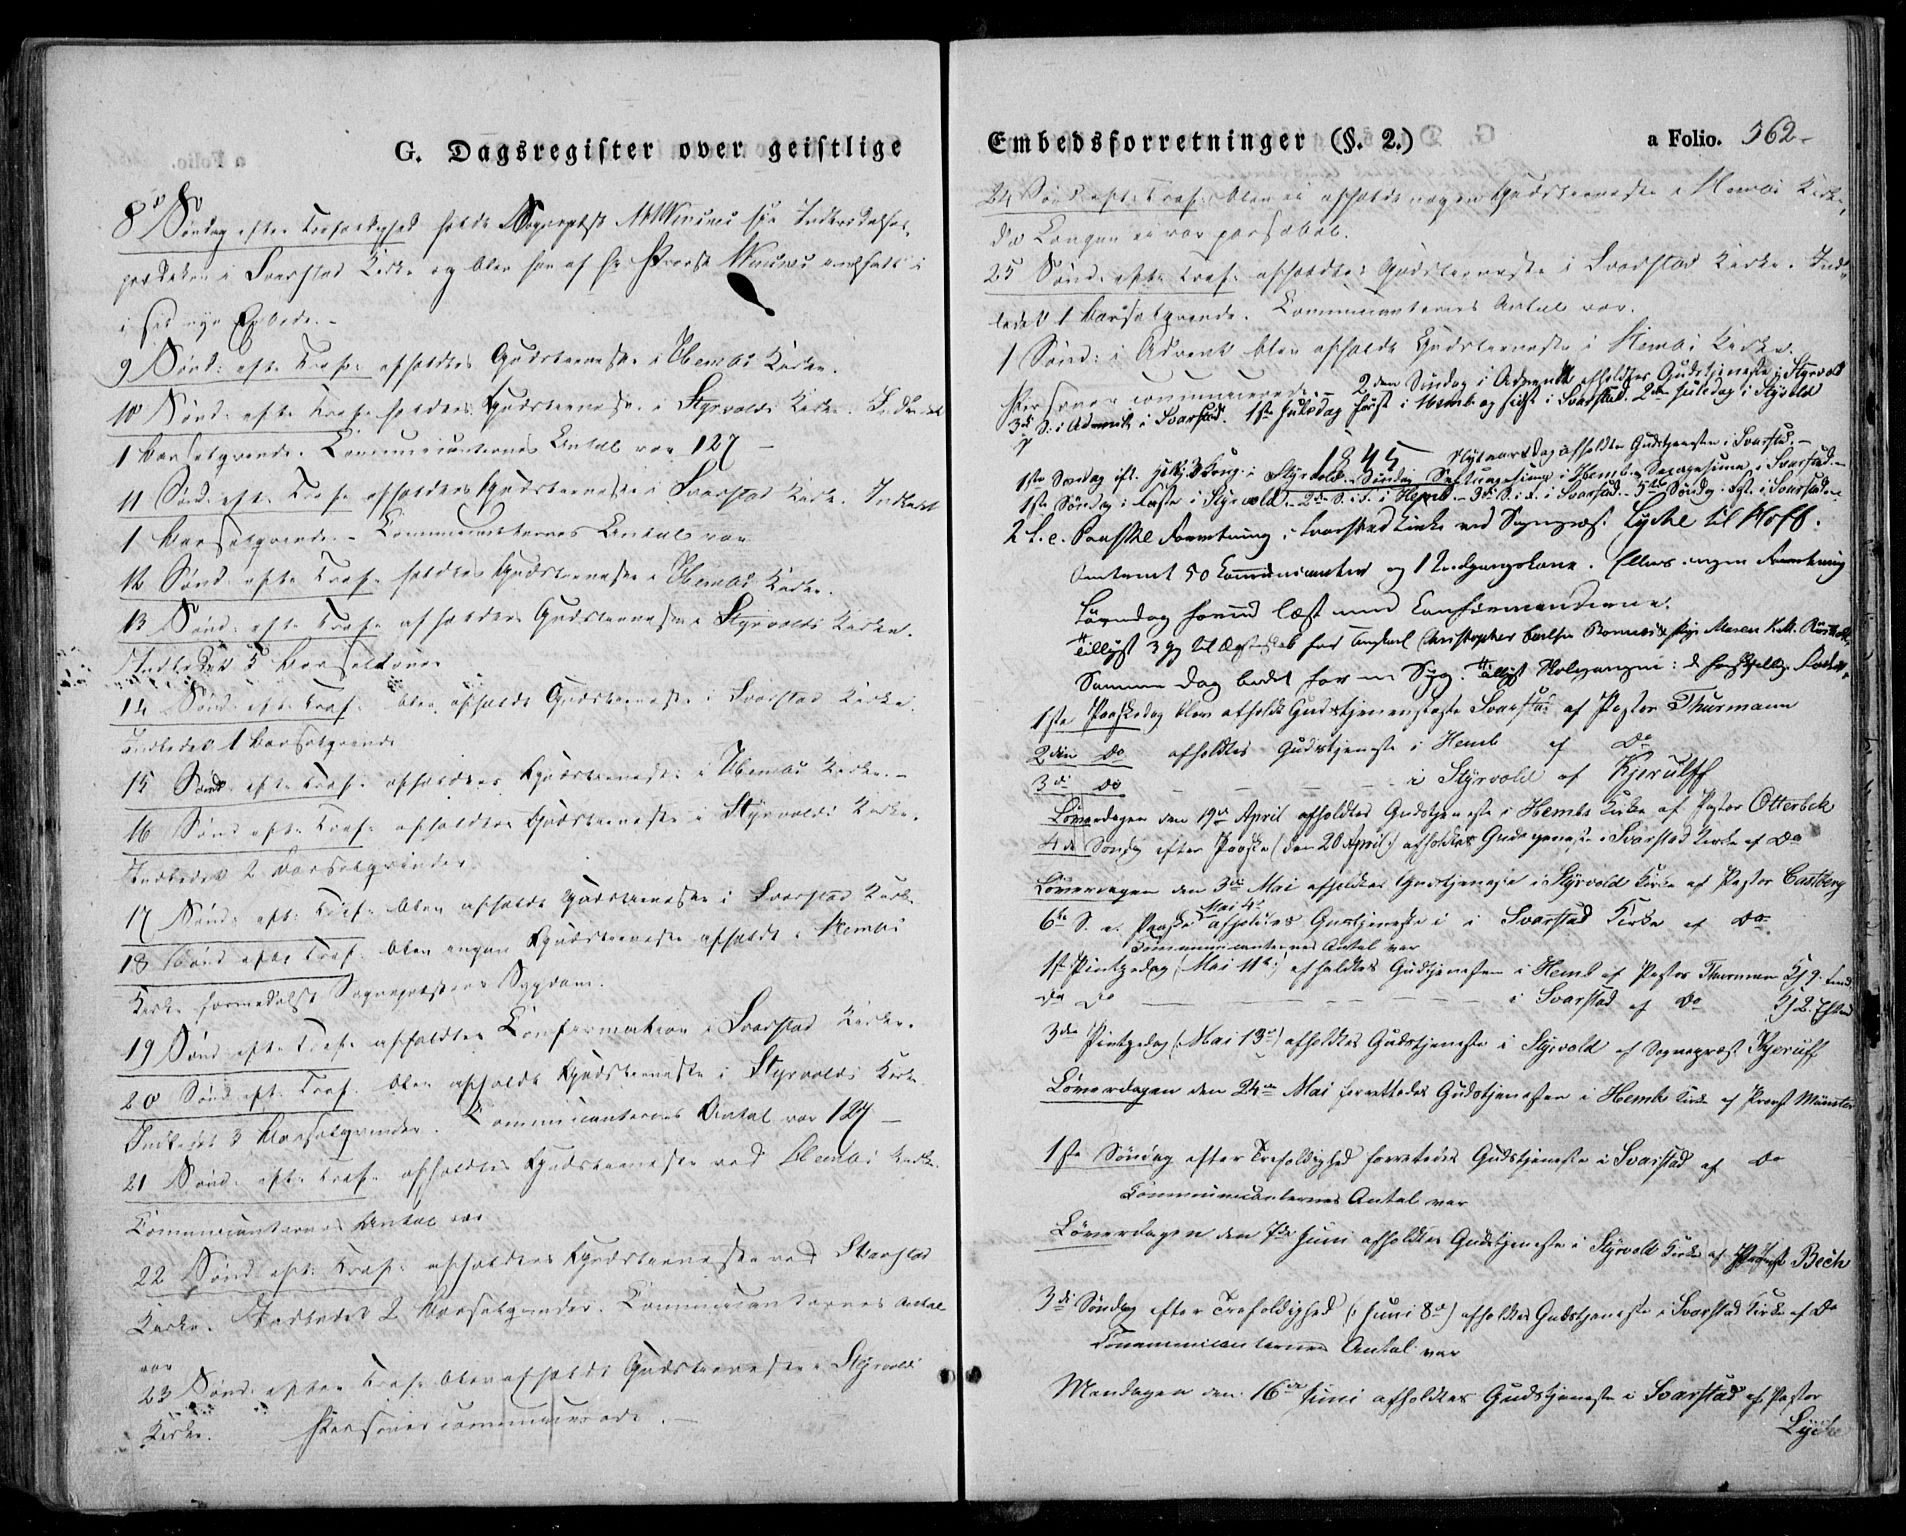 G. Dagsregister over geistlige
8de Søndag efter Trefoldighed holdt Sogneprest Münster sin Indtrædelses-
prædiken i Svarstad Kirke og blev han af Hr Provst Münster indsatt i
i sit nye Embede. -
9 Sønd: eft. Tref: afholdtes Gudstieneste i Hembs Kirke.
10 Sønd: eft. Tref. holdtes Gudstieneste i Styrvolds Kirke. Indledet
1 Barselqvinde. Communicanternes Antal var 127 -
11 Sønd: eft. Tref. afholdtes Gudstieneste i Svarstad Kirke. Indledet
1 Barselqvinde. - Communicanternes Antal var
12 Sønd: eft. Tref. holdtes Gudstieneste i Hembs Kirke.
13 Sønd: eft. Tref. afholdtes Gudstieneste i Styrvolds Kirke.
Indledet 5 Barselkoner
14 Sønd: eft. Tref. blev afholdt Gudstieneste i Svarstad Kirke.
Indledet 1 Barselqvinde
15 Sønd. eft. Tref. afholdtes Gudstieneste i Hembs Kirke. -
16 Sønd: eft. Tref. afholdtes Gudstieneste i Styrvolds Kirke.
Indledet 2 Barselqvinder.
17 Sønd: eft: Tref. blev afholdt Gudstieneste i Svarstad Kirke
18 Sønd eft. Tref. blev ingen Gudstieneste afholdt i Hembs
Kirke formedelst Sognepræstens Sygdom.
19 Sønd: eft. Tref. afholdtes Confirmation i Svarstad Kirke.
20 Sønd: eft. Tref. blev afholdt Gudstieneste i Styrvolds Kirke
Indledet 3 Barselqvinder. Communicanternes Antal var 127 -
21 Sønd. eft. Tref. afholdtes Gudstieneste ved Hembs Kirke.
Communicanternes Antal var
22 Sønd: eft: Tref: afholdtes Gudstieneste ved Svarstad
Kirke. Indledet 2 Barselqvinder. Communicanternes Antal
var
23 Sønd: efter Tref. blev afholdt Gudstieneste i Styrvolds
Kirke. Personer communicerede. -
Embedsforretninger (§. 2.) a Folio. 562-
24 Sønd eft. Tref: blev ei afholdt nogen Gudstieneste i Hembs Kirke,
da Veien ei var passabel.
25 Sønd: eft. Tref. afholdtes Gudstieneste i Svarstad Kirke. Ind-
ledet 1 Barselqvinde. Communicanternes Antal var.
1 Sønd: i Advent blev afholdt Gudstieneste i Hembs Kirke.
Personer communicerede. - 2den Søndag i Advent afholdtes Gudstjeneste i Styrvold
3de S. i Advent i Svarstad. 1ste Juledag først i Hemb og sidst i Svarstad. 2den Juledag i Styrvold
1845 Nytaarsdag afholdtes Gudstjenesten i Svarstad. -
1ste Søndag eft. Hellig 3 Kong. i Styrvold - Søndag Septuagesima i Hemb - Sexagesima i Svarstad. -
1ste Søndag i Faste i Styrvold. - 2den S. i F. i Hemb - 3de S. i F. i Svarstad. - 5te Søndag i Fast. i Svarstad -
Forretning i Svarstad Kirke ved Sognepr. Lyche til Hoff.
Omtrent 50 Communicanter og 1 Indgangskone. Ellers ingen Forretning
Løverdag forud læst med Confirmanterne.
Tillyst 3 Gg til Ægteskab for Christopher Maren
Samme Dag bedet for en Syg. Tillyst
1ste Paaskedag blev afholdt Gudstjeneneste Svarstad af Pastor Thurmann
2den Do afholdtes Gudstjeneste i Hemb af Do
3de Do - - - - i Styrvold af Kjerulff
Løverdagen den 19de April afholdtes Gudstjeneste i Hembs Kirke af Pastor Otterbek
4de Søndag efter Paaske (den 20 April:) afholdtes Gudstjeneste i Svarstad Kirke af Do
Løverdagen den 3de Mai afholdtes Gudstjeneste i Styrvold Kirke af Pastor Castberg
6te S. e. Paaske Mai 4de afholdtes Gudstjeneste i i Svarstad Kirke af Do.
Communicanternes Antal var
1ste Pintsedag (Mai 11te:) afholdtes Gudtjenesten i Hemb af Pastor Thurman Kl 9. Formd
Do Do - - - - - - - i Svarstad af Do Kl 2. Eftmd
3die Pintsedag (:Mai 13de) afholdtes Gudstjeneste i Styrvold af Sognepræst Kjerulff
Løverdagen den 24de Mai forrettedes Gudstjenesten i Hembs Kirke af Provst Münster
1ste Søndag efter Trefoldighed forrettedes Gudstjeneste i Svarstad af Do
Communicanternes Antal var
Løverdagen den 7de Juni afholdtes Gudstjeneste i Styrvold Kirke af Provst Bech
3de Søndag efter Trefoldighed (: Juni 8de) afholdtes Gudstjeneste i Svarstad Kirke af Do
Communicanternes Antal var
Mandagen den 16de Juni afholdtes Gudstjeneste i Svarstad af Pastor
Lyche